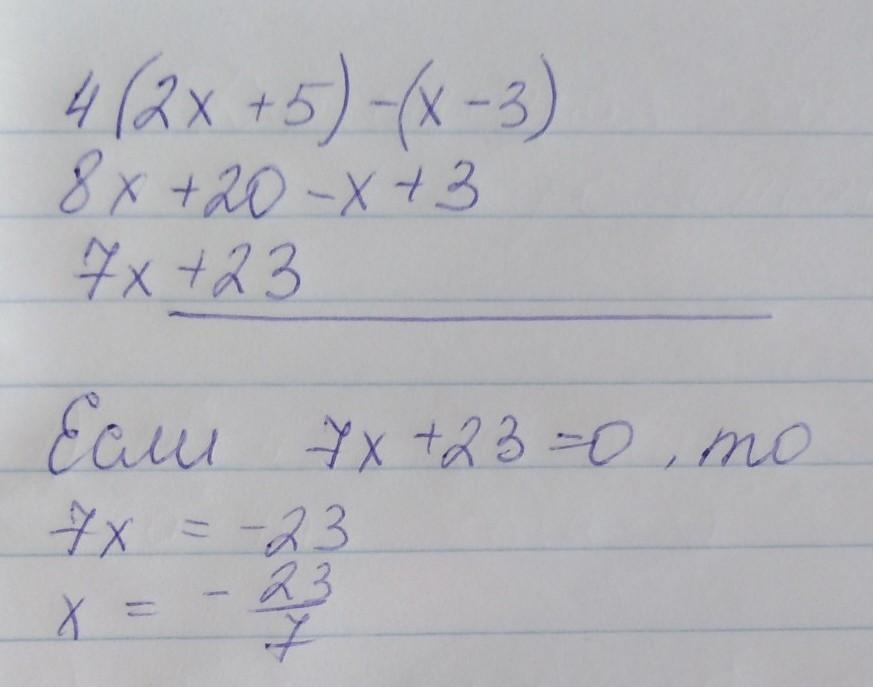 4(2x+5)-(x-3)
8x+20-x+3
7x+23
Если 7x+23=0, то
7x = -23
x = - 23/7